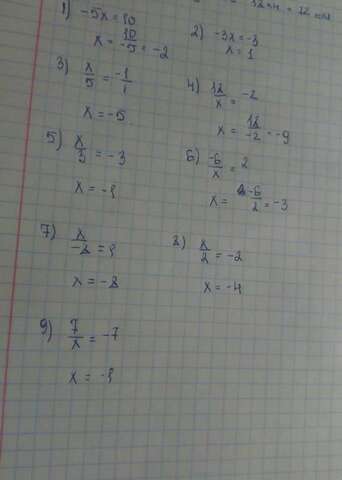 1) -5x = 10
x = 10/-5 = -2
2) -3x = -3
x = 1
3) x/5 = -1/1
x = -5
4) 18/x = -2
x = 18/-2 = -9
5) x/3 = -3
x = -9
6) -6/x = 2
x = -6/2 = -3
7) x/-8 = 1
x = -8
8) x/2 = -2
x = -4
9) 7/x = -7
x = -1